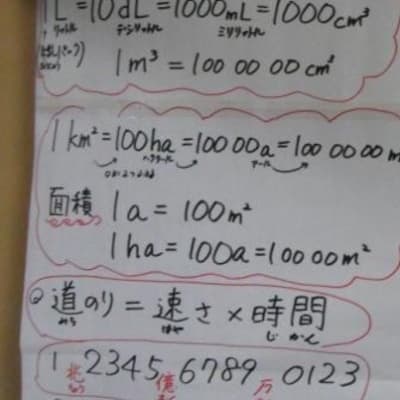 1L=10dL=1000mL=1000cm³
リットル デシリットル ミリリットル
1m³=1000000cm³
1km²=100ha=10000a=1000000m
ヘクタール アール
面積 1a=100m²
1ha=100a=10000m²
道のり=速さ×時間
みち はや じ かん
1兆2345億6789万0123
ちょう